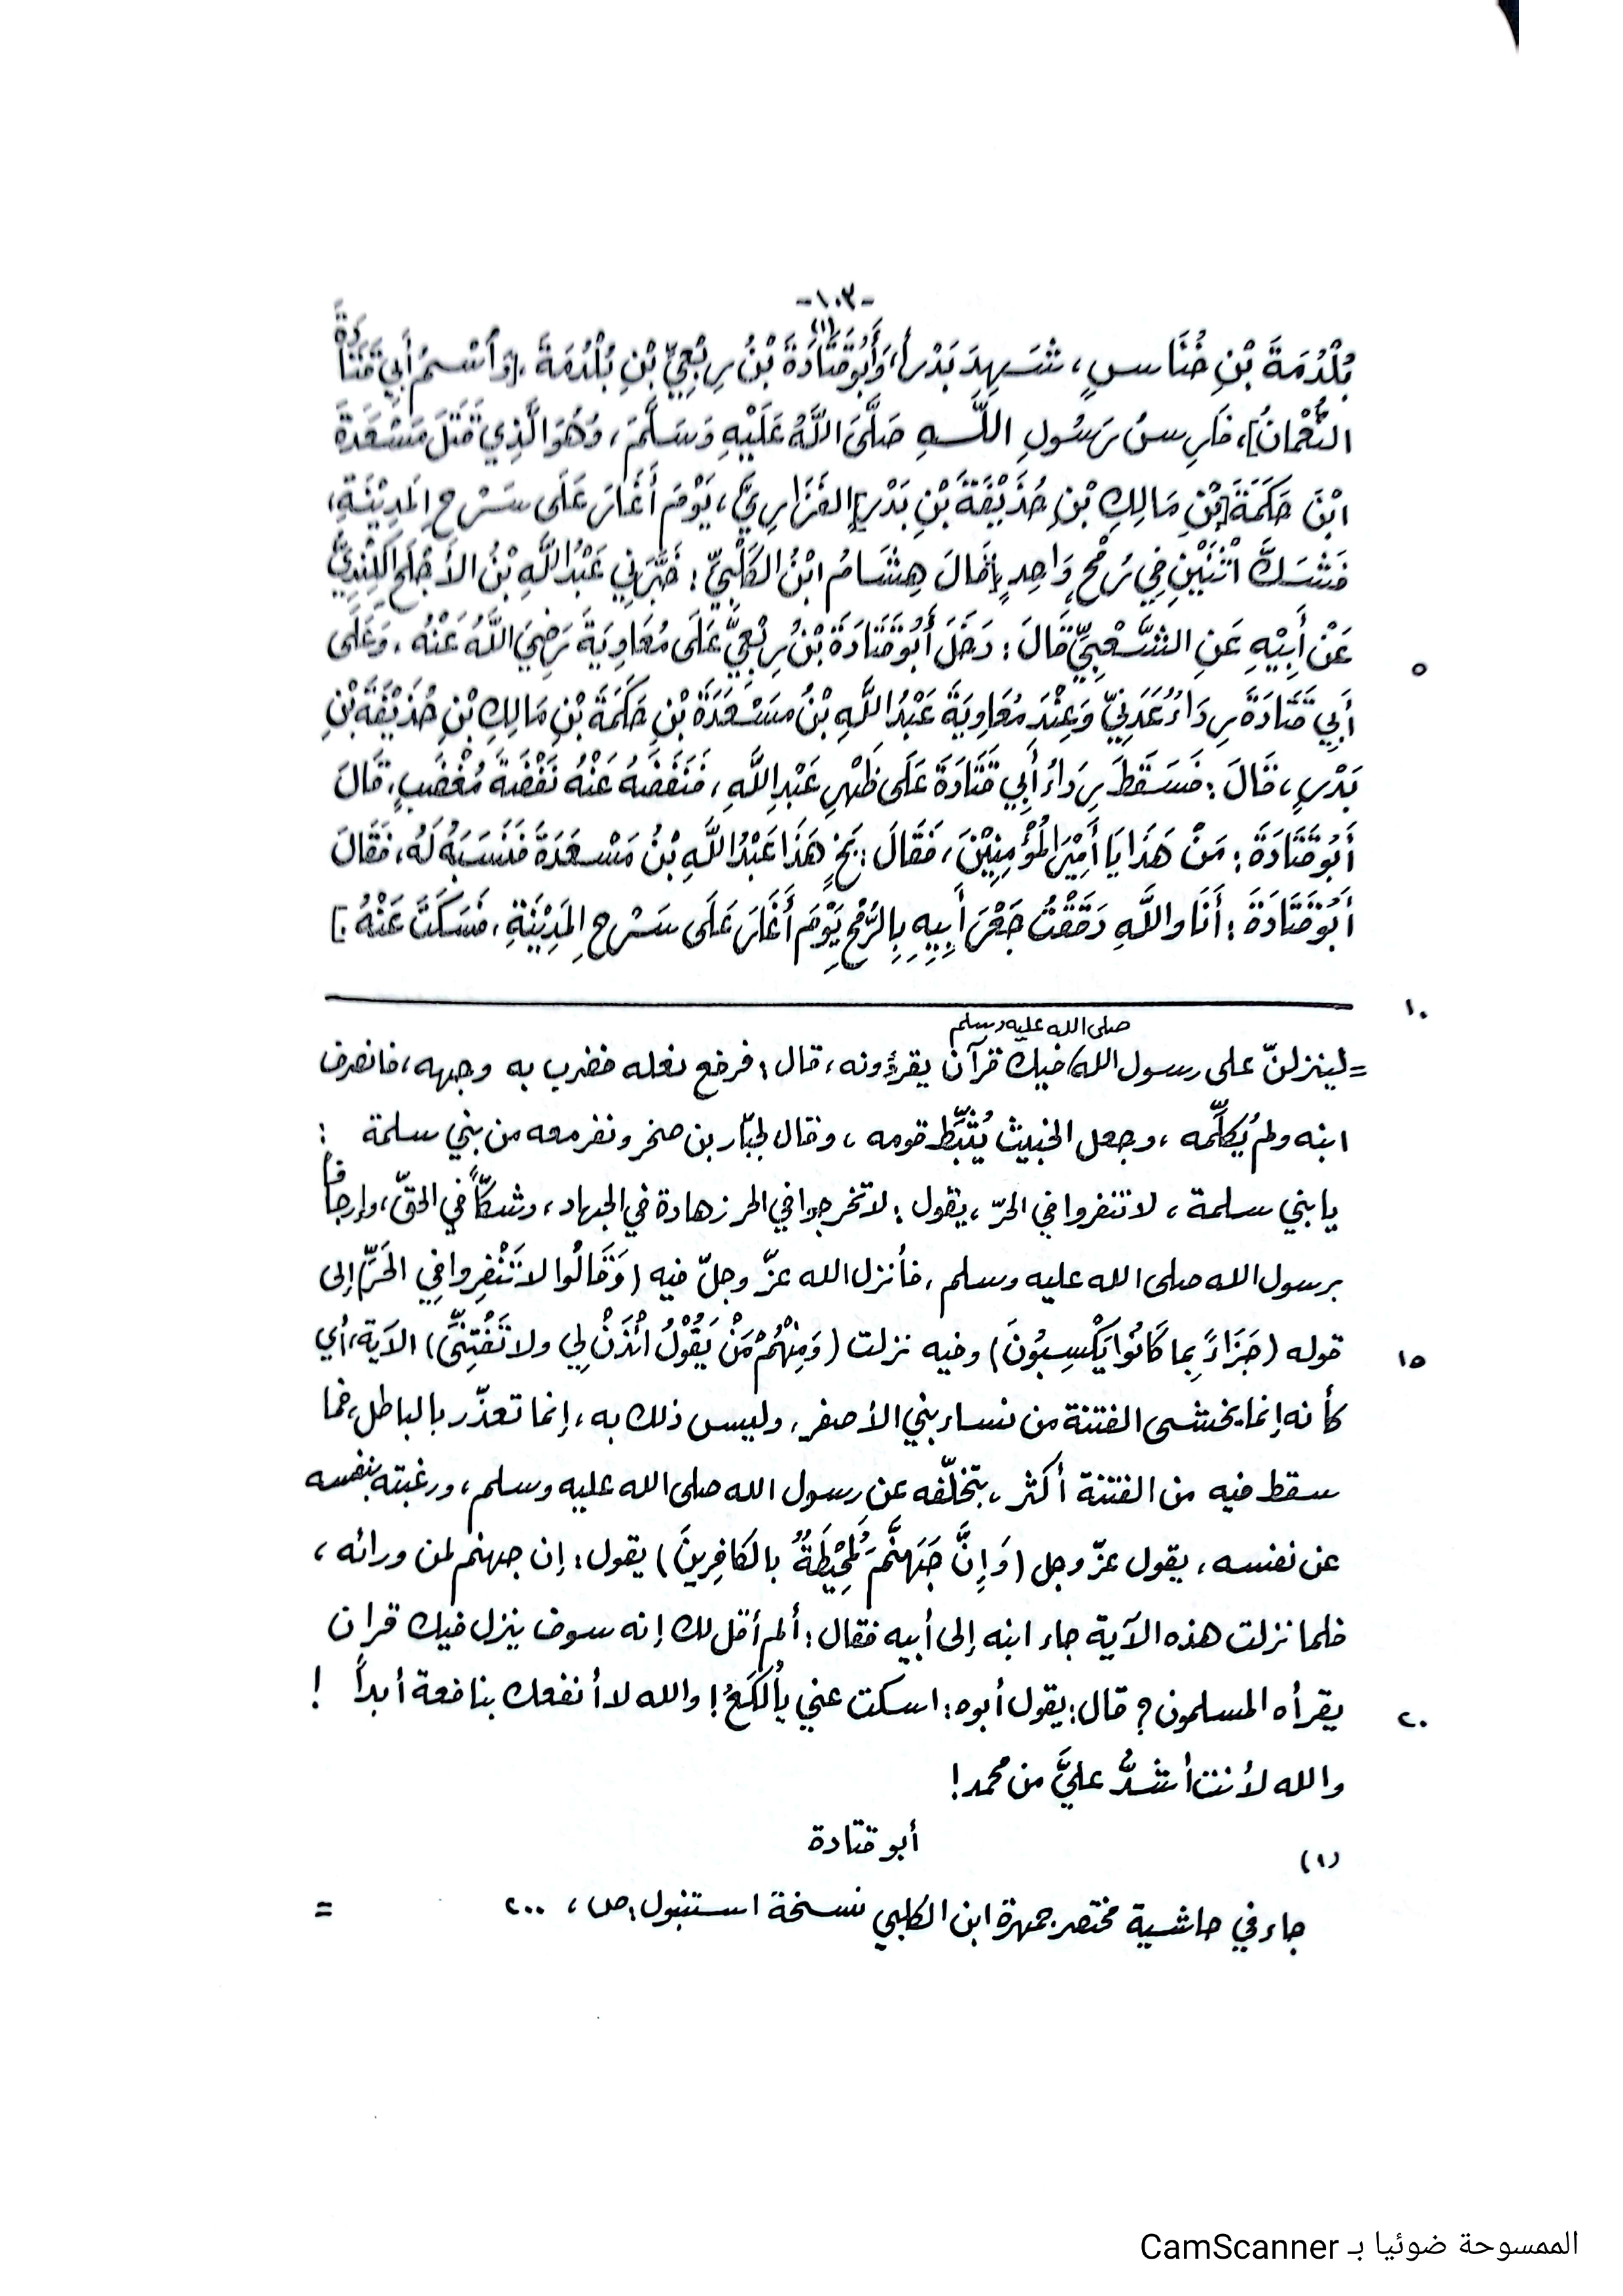 -١٠٣-
بُلْدُمَةَ بْنِ خُنَاسٍ، شَهِدَ بَدْراً، وَأَبُو قَتَادَةَ(١) بْنُ رِبْعِيِّ بْنِ بُلْدُمَةَ، [وَأسْمُ أَبِي قَتَادَةَ
النُّعْمانُ]، فَارِسُ رَسُولِ اللَّهِ صَلَّىَ اللَّهُ عَلَيْهِ وَسَلَّمَ، وَهُوَ الَّذِي قَتَلَ مَسْعَدَةَ
ابْنَ حَكَمَةَ [بْنِ مَالِكِ بْنِ حُذَيْفَةَ بْنِ بَدْرٍ] الفَزَارِيَّ، يَوْمَ أَغَارَ عَلَى سَرْحِ المَدِيْنَةِ،
فَشَكَّ اثْنَيْنِ فِي رُمْحٍ وَاحِدٍ [قَالَ هِشَامُ ابْنُ الكَلْبِيِّ: خَبَّرَنِي عَبْدُ اللَّهِ بْنُ الأَجْلَحِ الكِنْدِيُّ
عَنْ أَبِيْهِ عَنِ الشَّعْبِيِّ قَالَ: دَخَلَ أَبُو قَتَادَةَ بْنُ رِبْعِيٍّ عَلَى مُعَاوِيَةَ رَضِيَ اللَّهُ عَنْهُ، وَعَلَى
٥
أَبِي قَتَادَةَ رِدَاءٌ عَدَنِيٌّ وَعِنْدَ مُعَاوِيَةَ عَبْدُ اللَّهِ بْنُ مَسْعَدَةَ بْنِ حَكَمَةَ بْنِ مَالِكِ بْنِ حُذَيْفَةَ بْنِ
بَدْرٍ، قَالَ: فَسَقَطَ رِدَاءُ أَبِي قَتَادَةَ عَلَى ظَهْرِ عَبْدِ اللَّهِ، فَنَفَضَهُ عَنْهُ نَفْضَةَ مُغْضَبٍ، قَالَ
أَبُو قَتَادَةَ: مَنْ هَذَا يَا أَمِيْرَ المُؤْمِنِيْنَ، فَقَالَ: بَخٍ هَذَا عَبْدُ اللَّهِ بْنُ مَسْعَدَةَ فَنَسَبَهُ لَهُ، فَقَالَ
أَبُو قَتَادَةَ: أَنَا واللَّهِ دَقَقْتُ جَعْرَ أَبِيهِ بِالرُّمْحِ يَوْمَ أَغَارَ عَلَى سَرْحِ المَدِيْنَةِ، فَسَكَتَ عَنْهُ.]
١٠
صلى الله عليه وسلم
=لينزلنّ على رسول الله فيك قرآن يقرؤونه، قال: فرفع نعله فضرب به وجهه، فانصرف
ابنه ولم يُكلِّمه، وجعل الخبيث يُثبِّط قومه، وقال لجبّار بن صخر ونفر معه من بني سلمة :
يا بني سلمة، لا تنفروا في الحرّ، يقول: لا تخرجوا في الحر زهادة في الجهاد، وشكّاً في الحقّ، وإرجافاً
برسول الله صلى الله عليه وسلم، فأنزل الله عزّ وجلّ فيه (وَقَالُوا لا تَنْفِروا في الحَرِّ) إلى
قوله (جَزَاءً بِما كَانُوا يَكْسِبُونَ) وفيه نزلت (وَمِنْهُمْ مَنْ يَقُوْلُ ائْذَنْ لِي ولا تَفْتِنِّى) الآية، أي
١٥
كأنه إنما يخشى الفتنة من نساء بني الأصفر، وليس ذلك به، إنما تعذّر بالباطل، فما
سقط فيه من الفتنة أكثر، بتخلّفه عن رسول الله صلى الله عليه وسلم، ورغبته بنفسه
عن نفسه، يقول عزّ وجل (وَإِنَّ جَهَنَّمَ لَمُحِيْطَةٌ بالكافِرِينَ) يقول: إن جهنم لمن ورائه،
فلما نزلت هذه الآية جاء ابنه إلى أبيه فقال: ألم أقل لك إنه سوف ينزل فيك قران
يقرأه المسلمون؟ قال: يقول أبوه: اسكت عني يألُكَعُ! والله لا أنفعك بنافعة أبداً !
٢٠
والله لأنت أشدُّ عليَّ من محمد!
أبو قتادة
(١)
جاء في حاشية مختصر جمهرة ابن الكلبي نسخة استنبول: ص، ٢٠٠ =
الممسوحة ضوئيا بـ CamScanner